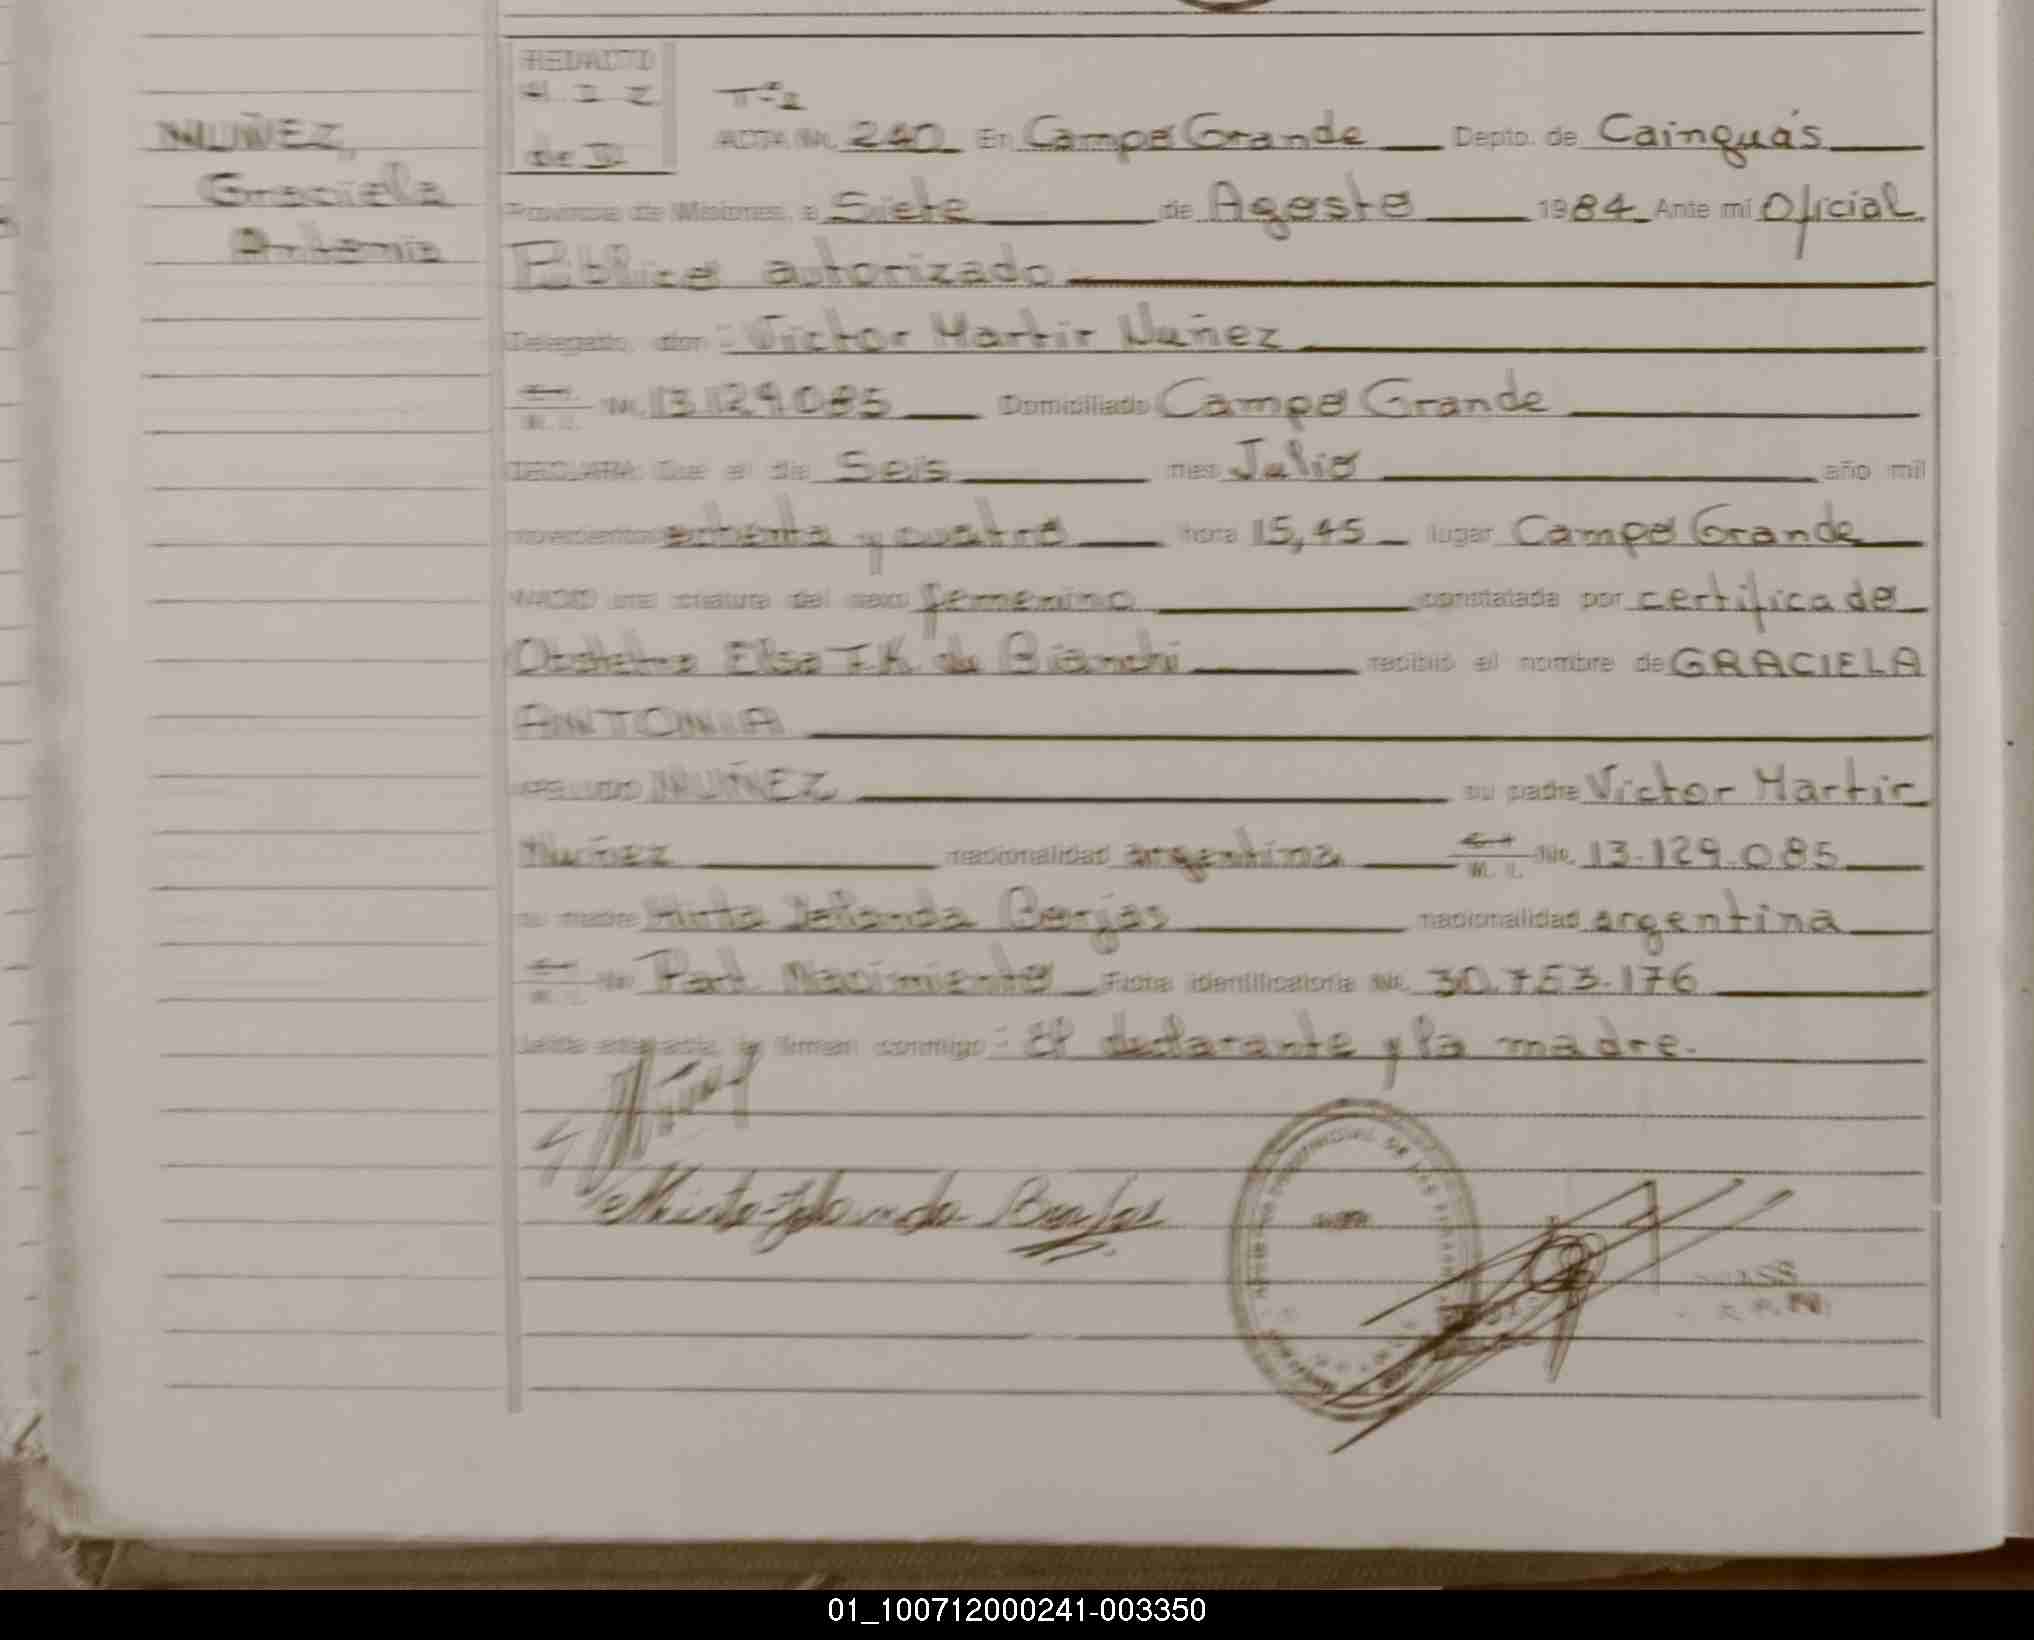 REDACTO
M. I. Z
de D
Tº 2
NUÑEZ,
Graciela
Antonia
ACTA Nº. 240 En Campo Grande Depto. de Cainguás
Provincia de Misiones, a Siete de Agosto 1984 Ante mi Oficial
Público autorizado
Delegado don: Victor Martir Nuñez
M. I. Nº. 13.129.085 Domiciliado Campo Grande
DECLARA: Que el dia Seis mes Julio año mil
novecientos ochenta y cuatro hora 15,45 lugar Campo Grande
NACIO una criatura del sexo femenino constatada por certificado
Obstetra Elsa T.K. de Bianchi recibió el nombre de GRACIELA
ANTONIA
APELLIDO NUÑEZ su padre Victor Martir
Nuñez nacionalidad argentina M. I. Nº. 13.129.085
su madre Mirta Iolanda Borjas nacionalidad argentina
M. I. Nº Part. Nacimiento Ficha identificatoria Nº. 30.753.176
Leida el acta, la firman conmigo: El declarante y la madre.
Mirta Iolanda Borjas
01_100712000241-003350